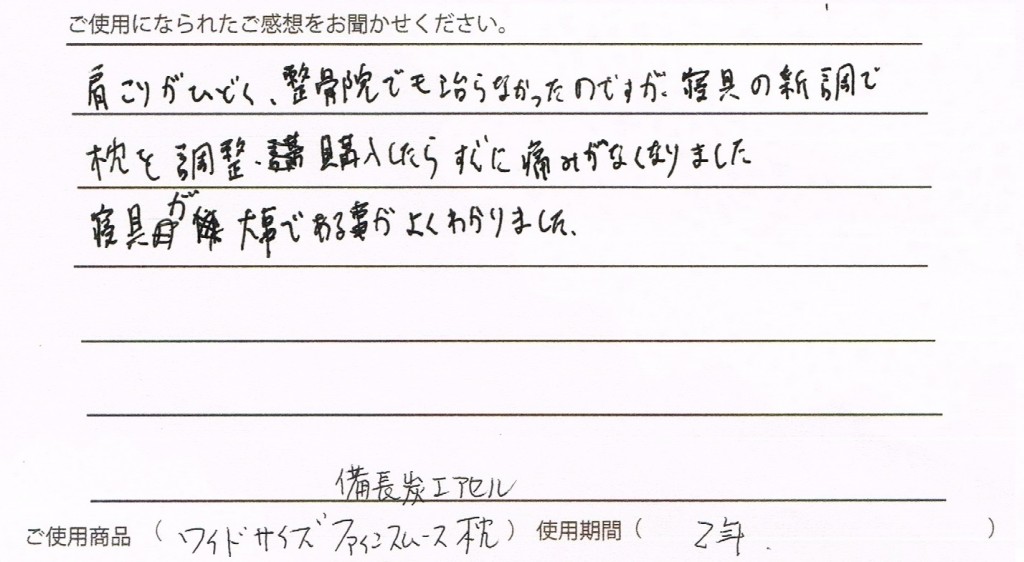 ご使用になられたご感想をお聞かせください。
肩こりがひどく、整骨院でも治らなかったのですが、寝具の新調で
枕を調整、購入したらすぐに痛みがなくなりました
寝具が大事である事がよくわかりました、
備長炭エアセル
ご使用商品（ワイドサイズファインスムース枕）使用期間（2年.）